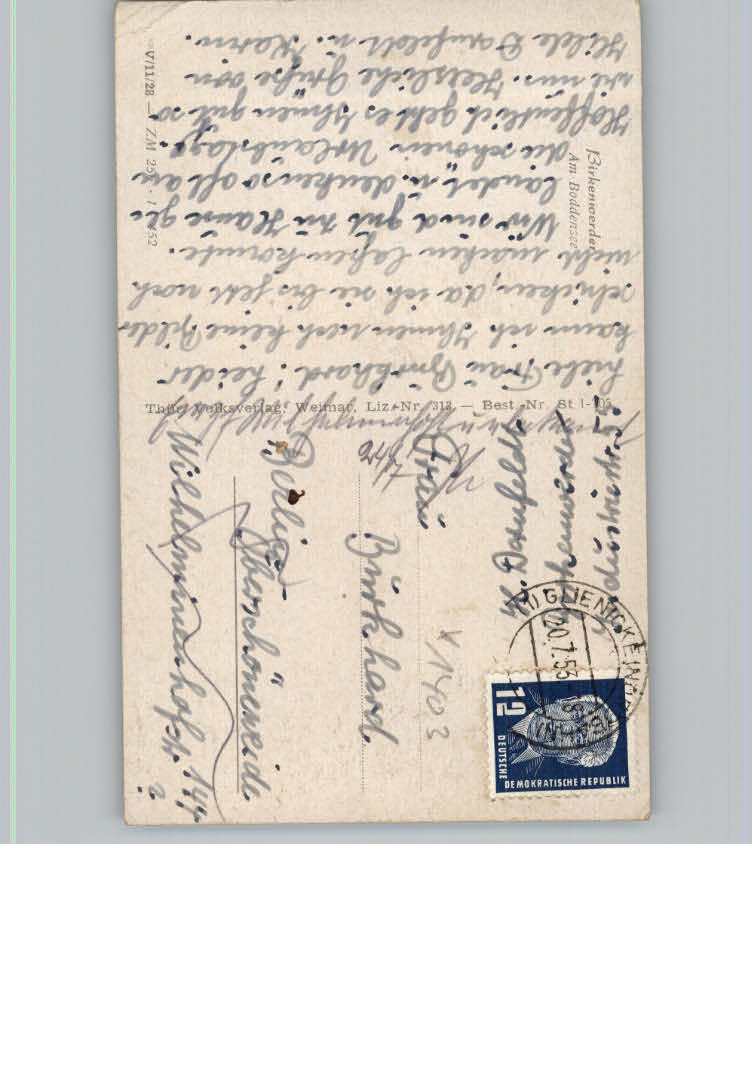 Birkenwerder
Am Boddensee
Liebe Frau Burkhard! Leider
kann ich Ihnen noch keine Bilder
schicken, da ich sie bis jetzt noch
nicht machen laßen konnte.
Wir sind gut zu Hause ge-
landet u. denken so oft an
die schönen Urlaubstage.
Hoffentlich geht es Ihnen gut so
wie uns. Herzliche Grüße von
Hilde u. Karin.
V/11/28 — ZM 1952
Thür. Volksverlag, Weimar, Liz.-Nr. 313 — Best.-Nr. St I-105
GLIENICKE
20.7.53
12
DEUTSCHE
DEMOKRATISCHE REPUBLIK
Frau
Burkhard
Berlin-
Oberschöneweide
Wilhelminenhofstr. 144
x 1403